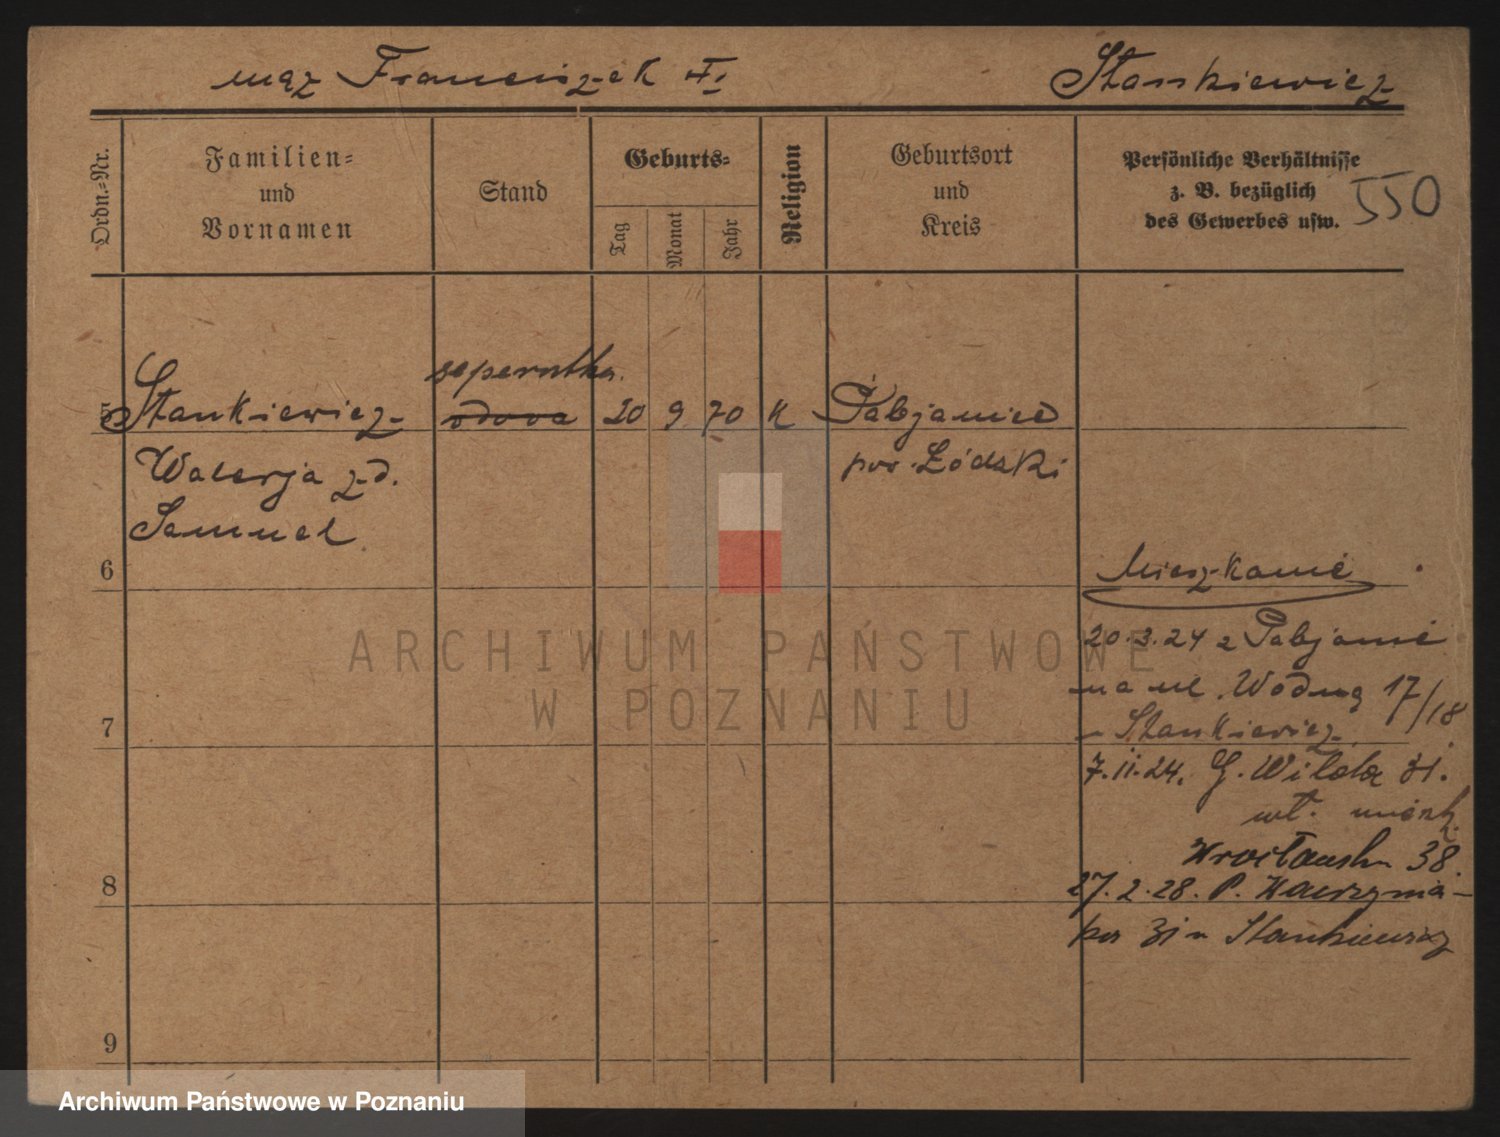 mąż Franciszek
Stankiewicz
Ordn.-Nr.
Familien-
und
Vornamen
Stand
Geburts-
Tag
Monat
Jahr
Religion
Geburtsort
und
Kreis
Persönliche Verhältnisse
z. B. bezüglich
des Gewerbes usw.
550
5 Stankiewicz
seperatka
wdowa
20 9 70 K Pabjanice
Walerja z d.
pow. Łódzki
Samuel
6
Mieszkanie
20.3.24 z Pabjanic
na ul. Wodną 17/18
u Stankiewicz
7
7.11.24. G. Wilda 31.
wł. mieszk.
Wrocławska 38.
8
27.2.28. P. Wawrzynia-
ka 31 u Stankiewicz
9
ARCHIWUM PAŃSTWOWE
W POZNANIU
Archiwum Państwowe w Poznaniu